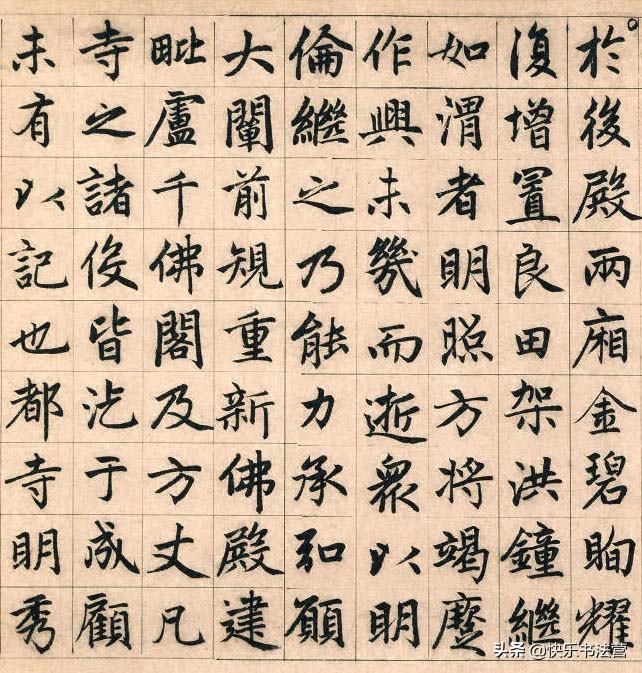 於後殿兩廂金碧眴耀
復增置良田架洪鐘繼
如渭者明照方將竭蹷
作興未幾而逝衆以明
倫繼之乃能力承弘願
大闡前規重新佛殿建
毗盧千佛閣及方丈凡
寺之諸役皆汔于成顧
未有以記也都寺明秀
头条 @快乐书法营